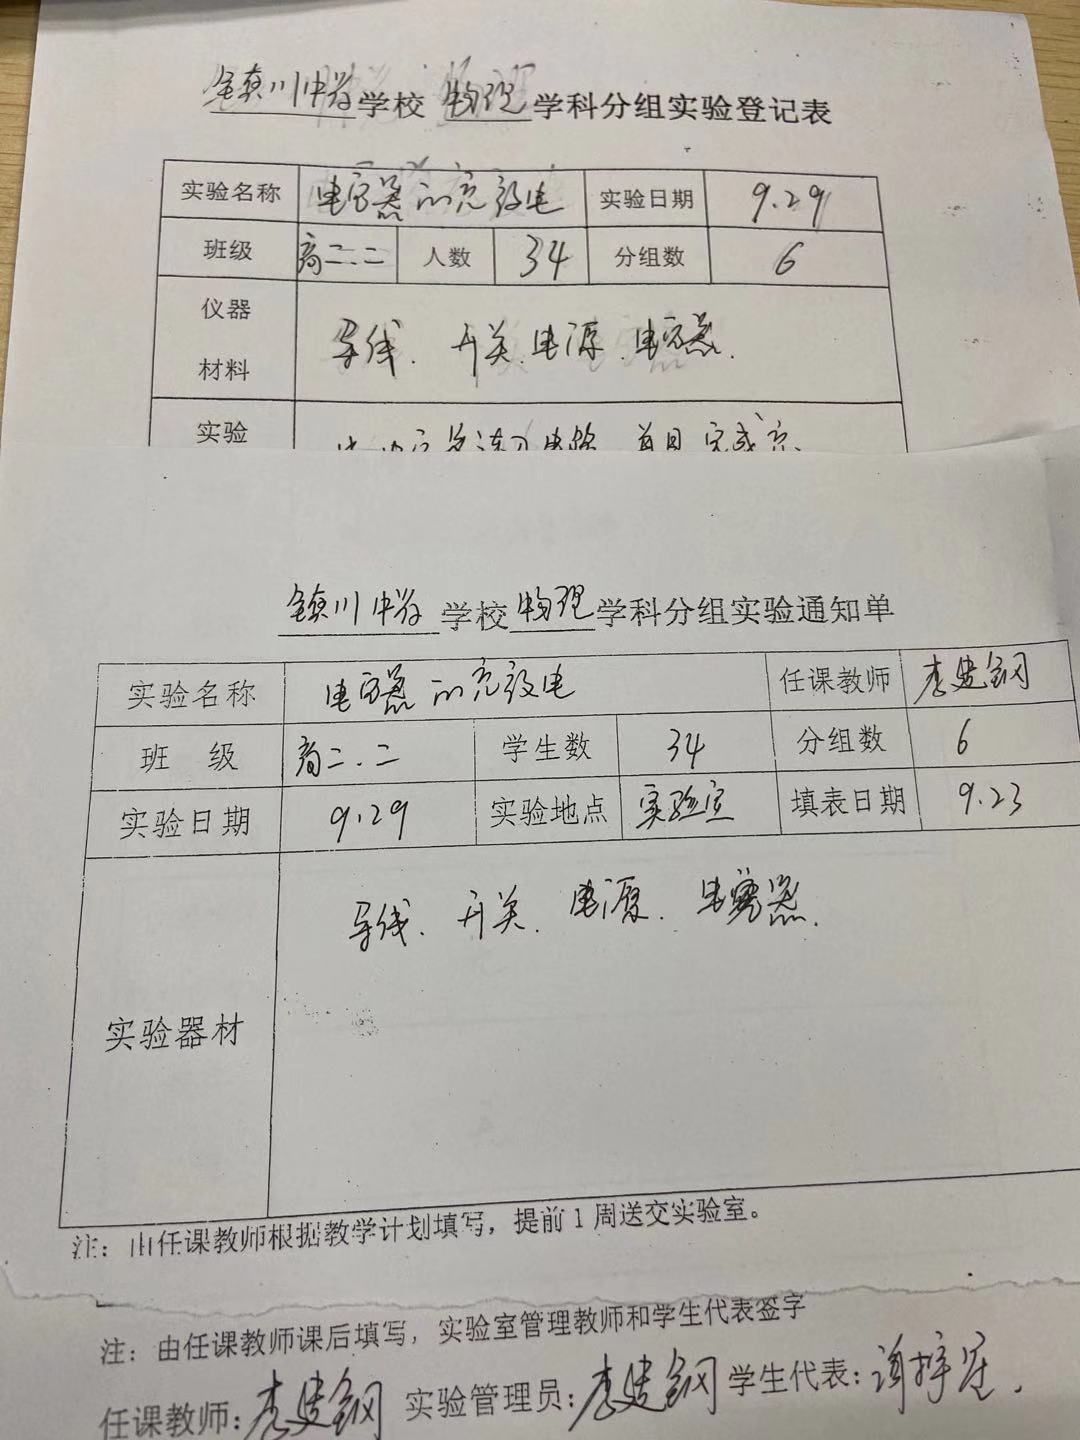 镇川中学学校 物理 学科分组实验登记表
实验名称 电容器的充放电 实验日期 9.29
班级 高二.二 人数 34 分组数 6
仪器
材料
导线. 开关. 电源. 电容器.
实验
镇川中学 学校 物理 学科分组实验通知单
实验名称 电容器的充放电 任课教师 李建钢
班 级 高二.二 学生数 34 分组数 6
实验日期 9.29 实验地点 实验室 填表日期 9.23
导线. 开关. 电源. 电容器.
实验器材
注：由任课教师根据教学计划填写，提前1周送交实验室。
注：由任课教师课后填写，实验室管理教师和学生代表签字
任课教师: 李建钢 实验管理员: 李建钢 学生代表: